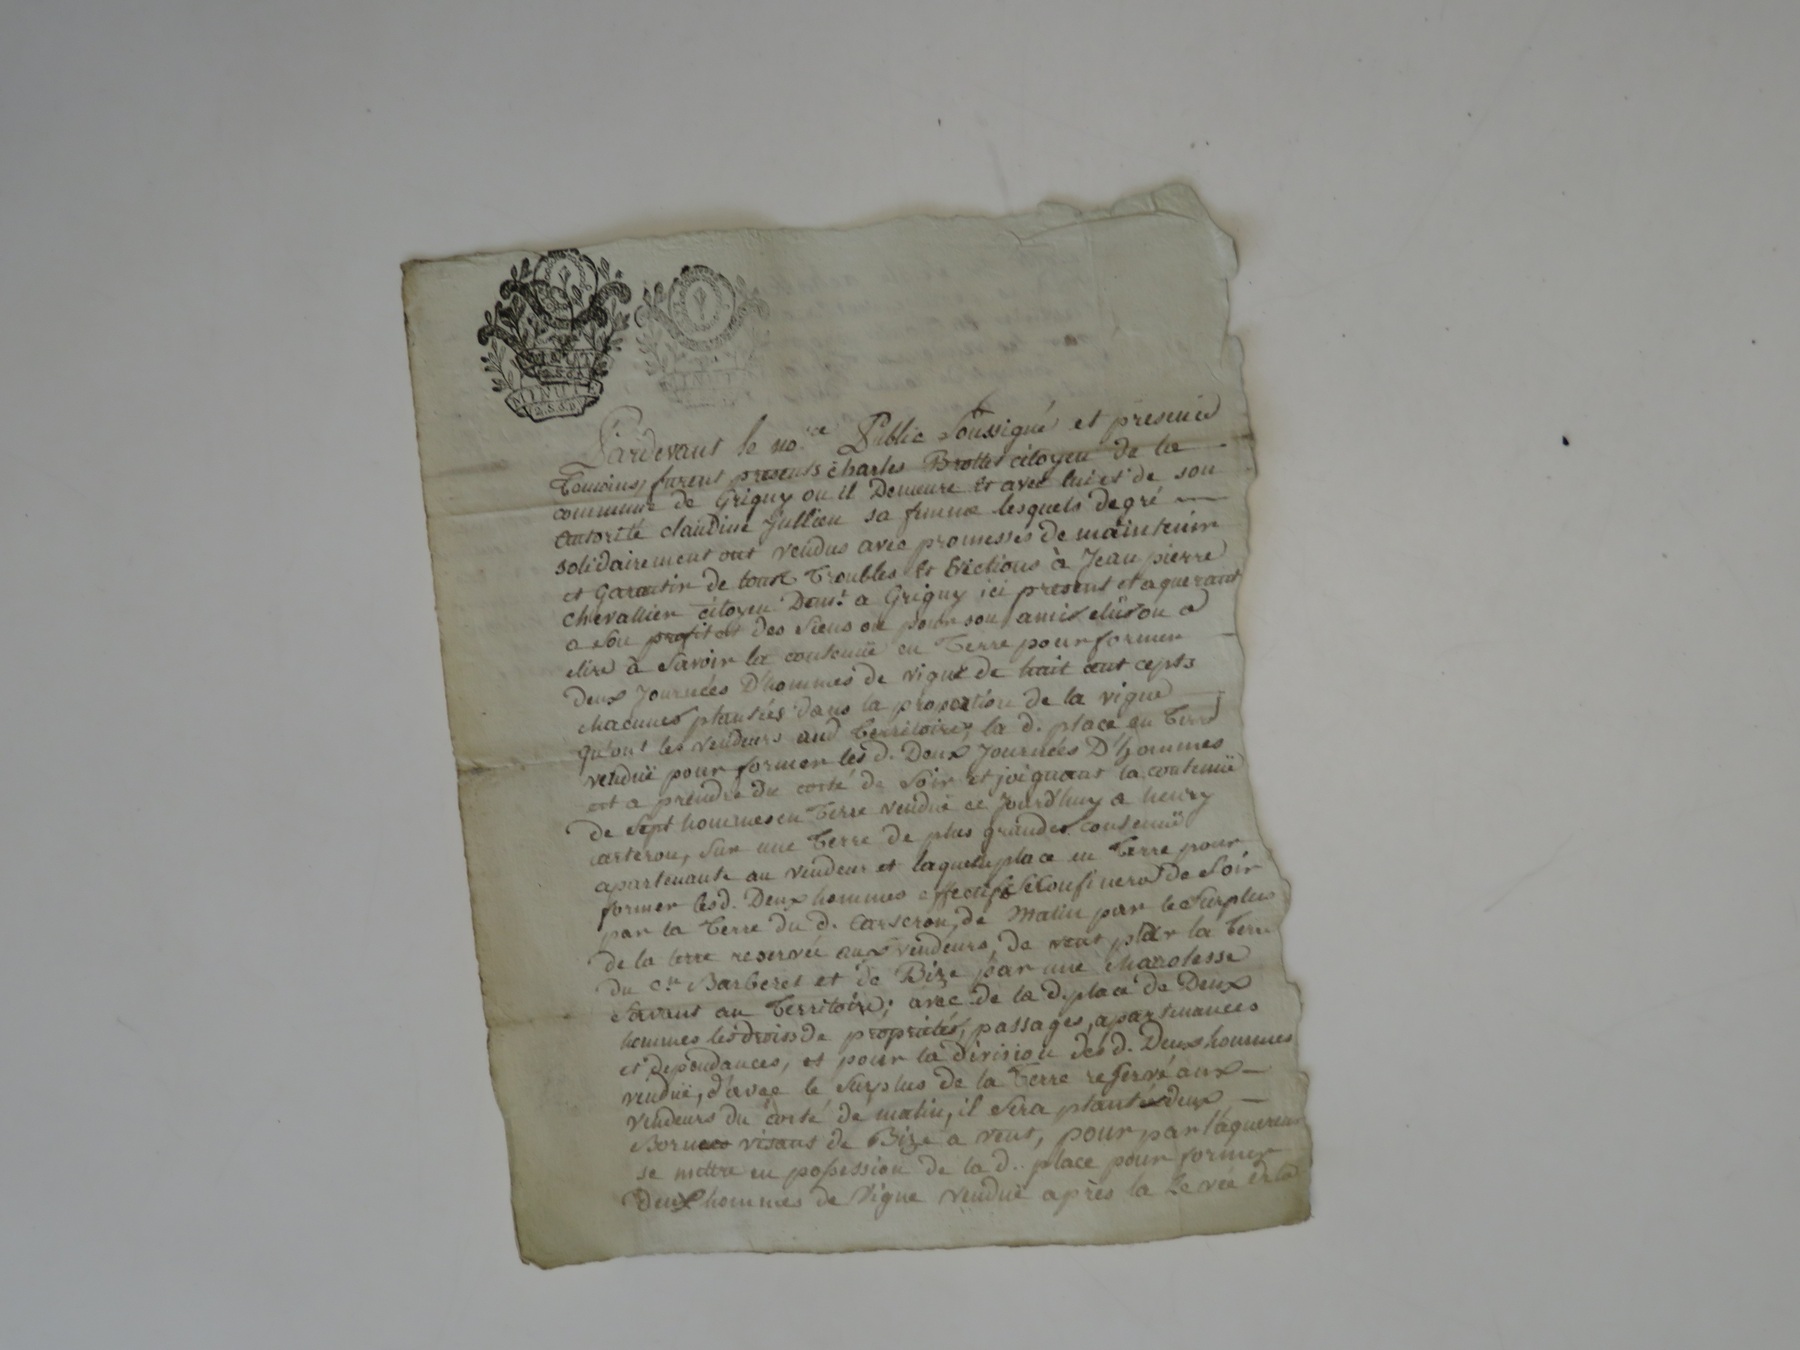 MINUTE
2.S.6.D
MINUTE
2.S.6.D
MINUTE
Pardevant le no.re Public Soussigné et presence
Temoins, furent presents Charles Brottet citoyen de la
commune de Grigny ou il Demeure et avec lui et de son
autorité claudine Jullien sa femme lesquels degré
solidairement ont vendus avec promesses de maintenir
et Garantir de tous Troubles et Evictions à Jean pierre
chevallier citoyen Demt. a Grigny ici present et aquerant
a son profit et des siens ou pour son amis elüs ou a
elire à Savoir la contenuë en Terre pour former
deux Journées D'hommes de vigne de huit cent cepts
chacunes plantées dans la proportion de la vigne
qu'ont les vendeurs aud Territoire, la d. place en Terre
venduë pour former les d. Deux Journées D'hommes
est a prendre du cotté de Soir et joignant la contenuë
de Sept hommes en Terre venduë ce Jourd'huy a henry
carteron, Sur une Terre de plus grandes contenuë
apartenante au vendeur et laquelle place en Terre pour
former lesd. Deux hommes effectifs Se Confinera de Soir
par la Terre du d. Carteron, de Matin par le Surplus
de la terre reservée aux vendeurs, de vent par la Terre
du c.en Barberet et de Bize par une charolesse
Servant au Territoire; avec de la d. place de Deux
hommes les droits de proprietés, passages, apartenances
et dependances, et pour la division des d. Deux hommes
venduë, d'avec le Surplus de la Terre reservé aux
vendeurs du cotté de matin, il Sera planté deux
Bornes visant de Bize a vent, pour par l'aquereur
se mettre en possession de la d. place pour former
Deux hommes de Vigne venduë après la Levée de la